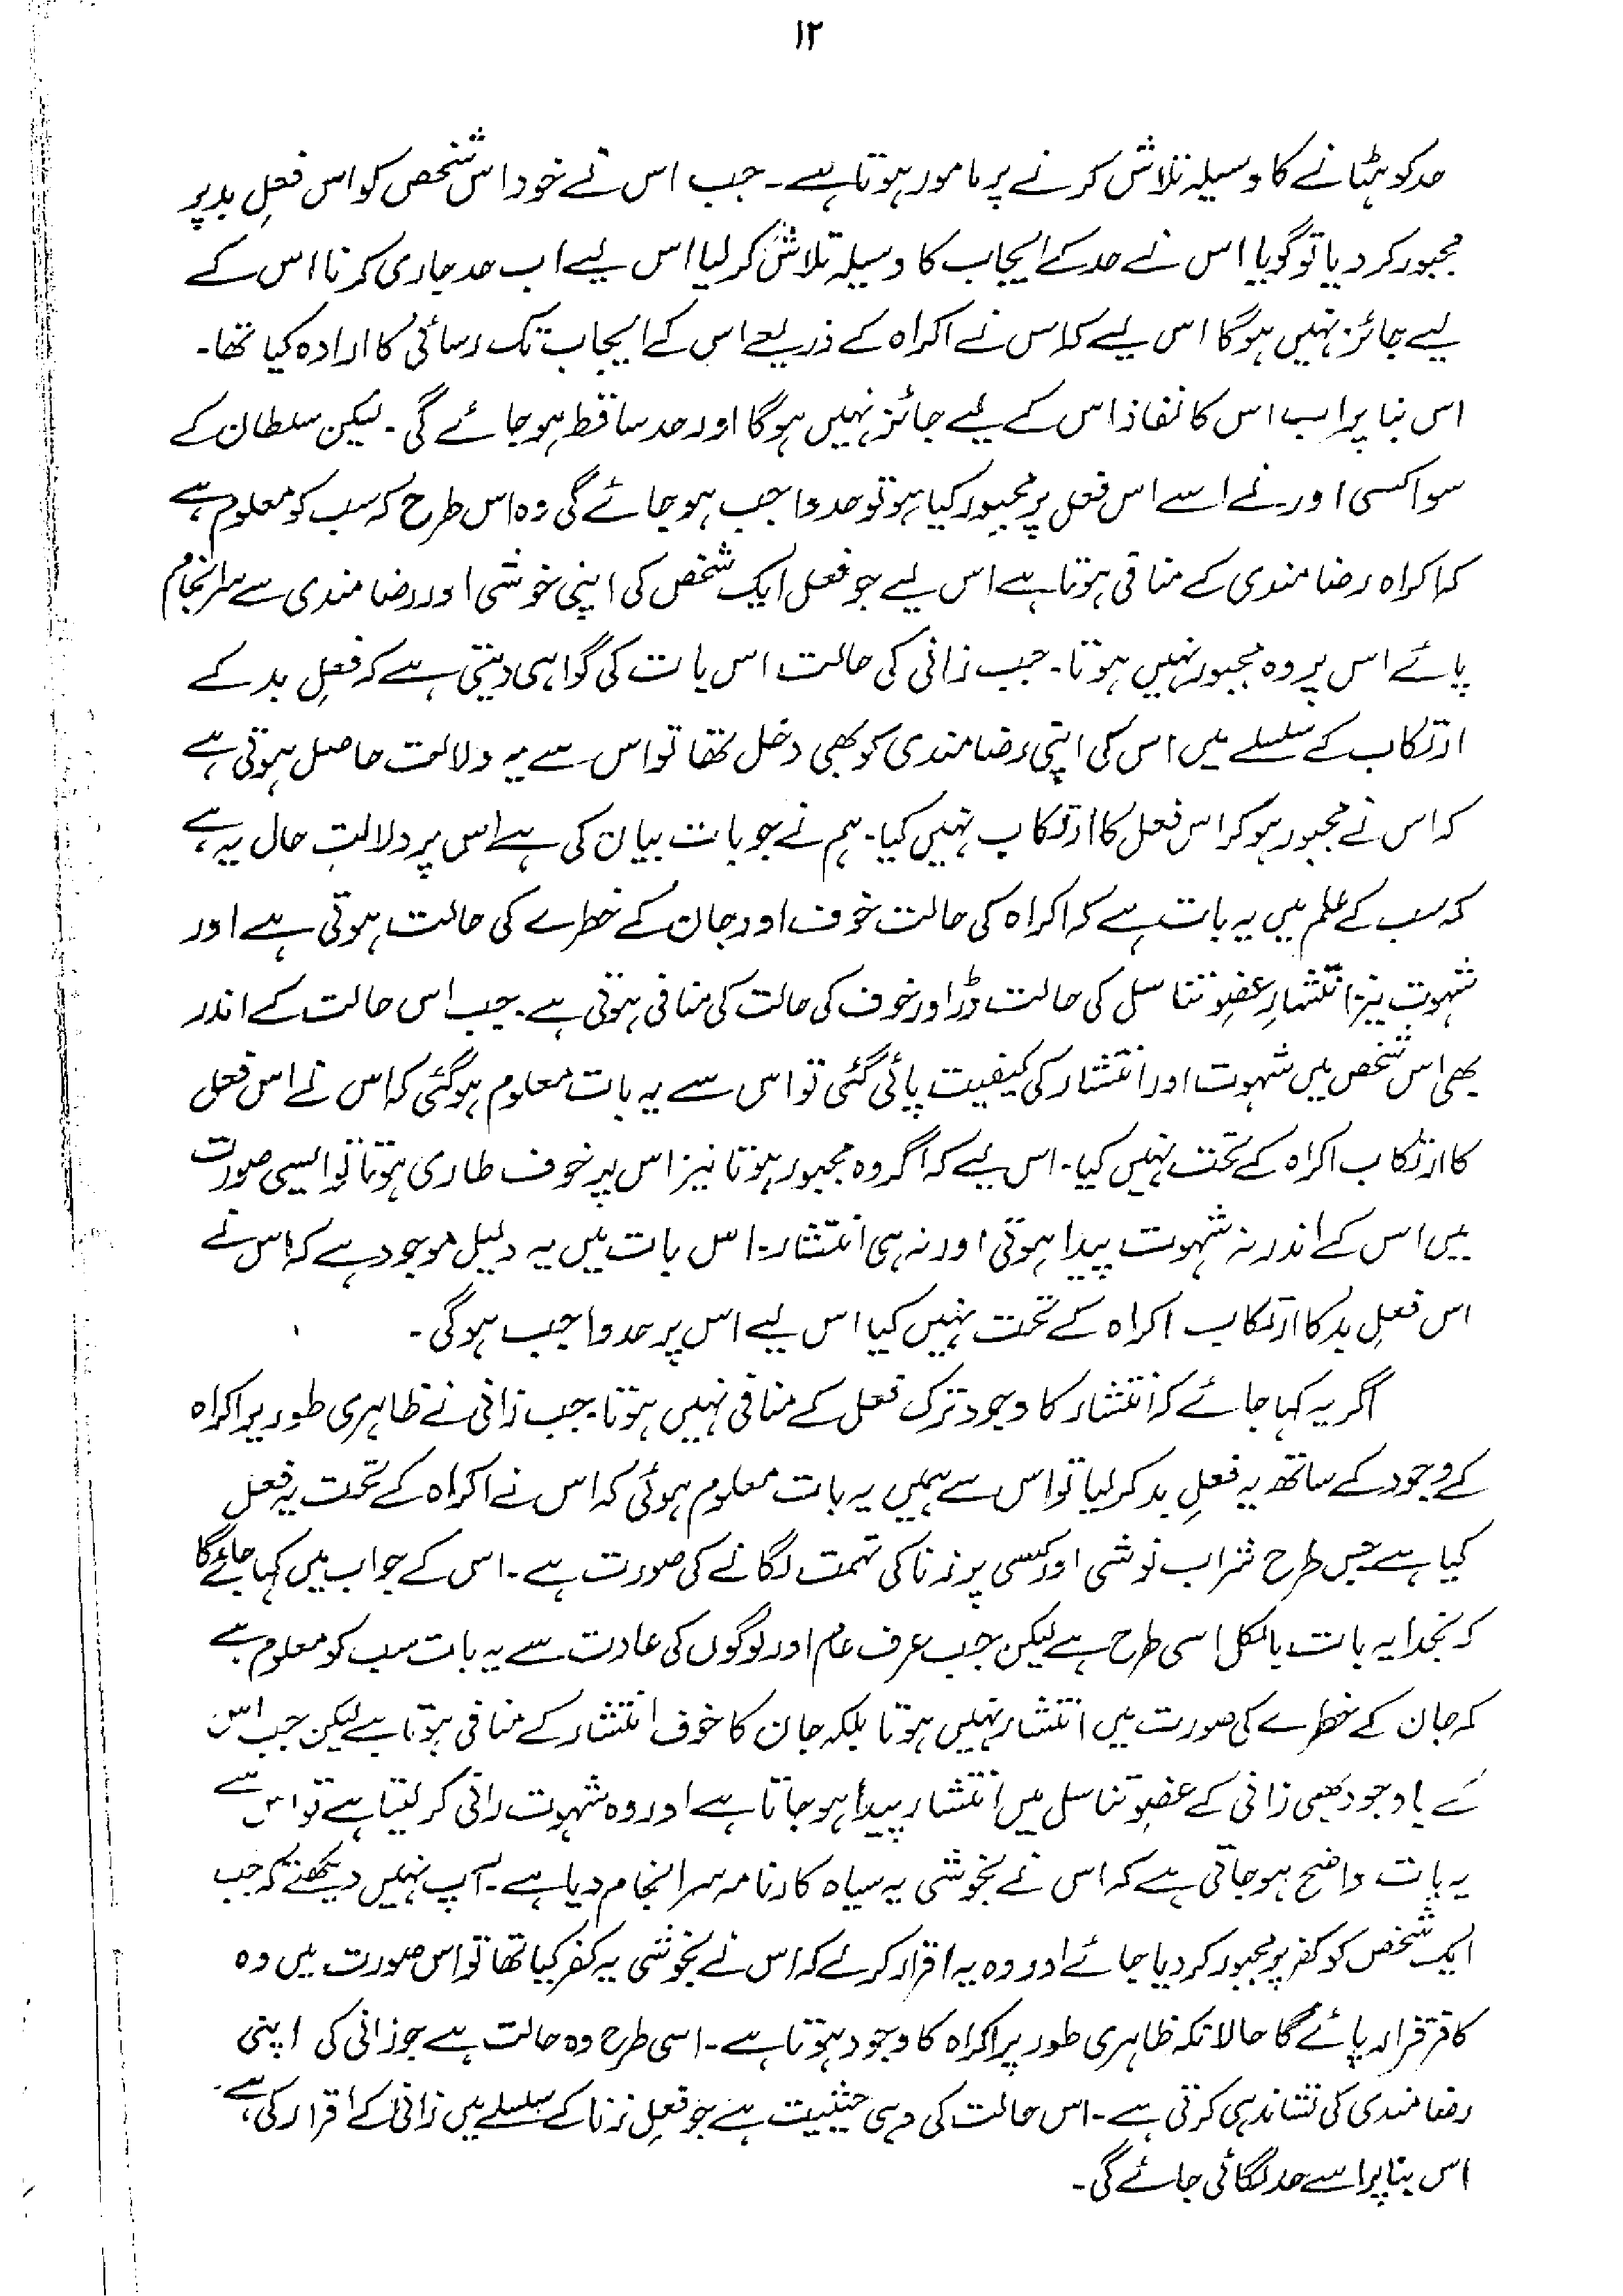 ۱۲
حد کو ہٹانے کا وسیلہ تلاش کرنے پر مامور ہوتا ہے۔ جب اس نے خود اس شخص کو اس فعلِ بد پر
مجبور کر دیا تو گویا اس نے حد کے ایجاب کا وسیلہ تلاش کر لیا اس لیے اب حد جاری کرنا اس کے
لیے جائز نہیں ہوگا اس لیے کہ اس نے اکراہ کے ذریعے اس کے ایجاب تک رسائی کا ارادہ کیا تھا۔
اس بنا پر اب اس کا نفاذ اس کے لیے جائز نہیں ہوگا اور حد ساقط ہو جائے گی۔ لیکن سلطان کے
سوا کسی اور نے اسے اس فعل پر مجبور کیا ہو تو حد واجب ہو جائے گی وہ اس طرح کہ سب کو معلوم ہے
کہ اکراہ رضامندی کے منافی ہوتا ہے اس لیے جو فعل ایک شخص کی اپنی خوشی اور رضامندی سے سرانجام
پائے اس پر وہ مجبور نہیں ہوتا۔ جب زانی کی حالت اس بات کی گواہی دیتی ہے کہ فعلِ بد کے
ارتکاب کے سلسلے میں اس کی اپنی رضامندی کو بھی دخل تھا تو اس سے یہ دلالت حاصل ہوتی ہے
کہ اس نے مجبور ہو کر اس فعل کا ارتکاب نہیں کیا۔ ہم نے جو بات بیان کی ہے اس پر دلالتِ حال یہ ہے
کہ سب کے علم میں یہ بات ہے کہ اکراہ کی حالت خوف اور جان کے خطرے کی حالت ہوتی ہے اور
شہوت نیز انتشارِ عضوِ تناسل کی حالت ڈر اور خوف کی حالت کی منافی ہوتی ہے۔ جب اس حالت کے اندر
بھی اس شخص میں شہوت اور انتشار کی کیفیت پائی گئی تو اس سے یہ بات معلوم ہو گئی کہ اس نے اس فعل
کا ارتکاب اکراہ کے تحت نہیں کیا۔ اس لیے کہ اگر وہ مجبور ہوتا نیز اس پر خوف طاری ہوتا تو ایسی صورت
میں اس کے اندر نہ شہوت پیدا ہوتی اور نہ ہی انتشار۔ اس بات میں یہ دلیل موجود ہے کہ اس نے
اس فعلِ بد کا ارتکاب اکراہ کے تحت نہیں کیا اس لیے اس پر حد واجب ہوگی۔
اگر یہ کہا جائے کہ انتشار کا وجود ترک فعل کے منافی نہیں ہوتا۔ جب زانی نے ظاہری طور پر اکراہ
کے وجود کے ساتھ یہ فعلِ بد کر لیا تو اس سے ہمیں یہ بات معلوم ہوئی کہ اس نے اکراہ کے تحت یہ فعل
کیا ہے جس طرح شراب نوشی اور کسی پر زنا کی تہمت لگانے کی صورت ہے۔ اس کے جواب میں کہا جائے گا
کہ بخدا یہ بات بالکل اسی طرح ہے لیکن جب عرف عام اور لوگوں کی عادت سے یہ بات سب کو معلوم ہے
کہ جان کے خطرے کی صورت میں انتشار نہیں ہوتا بلکہ جان کا خوف انتشار کے منافی ہوتا ہے لیکن جب اس
کے باوجود بھی زانی کے عضوِ تناسل میں انتشار پیدا ہو جاتا ہے اور وہ شہوت رانی کر لیتا ہے تو اس سے
یہ بات واضح ہو جاتی ہے کہ اس نے بخوشی یہ سیاہ کارنامہ سرانجام دیا ہے۔ آپ نہیں دیکھتے کہ جب
ایک شخص کو کفر پر مجبور کر دیا جائے اور وہ یہ اقرار کر لے کہ اس نے بخوشی یہ کفر کیا تھا تو اس صورت میں وہ
کافر قرار پائے گا حالانکہ ظاہری طور پر اکراہ کا وجود ہوتا ہے۔ اسی طرح وہ حالت ہے جو زانی کی اپنی
رضامندی کی نشاندہی کرتی ہے۔ اس حالت کی وہی حیثیت ہے جو فعلِ زنا کے سلسلے میں زانی کے اقرار کی ہے۔
اس بنا پر اسے حد لگائی جائے گی۔